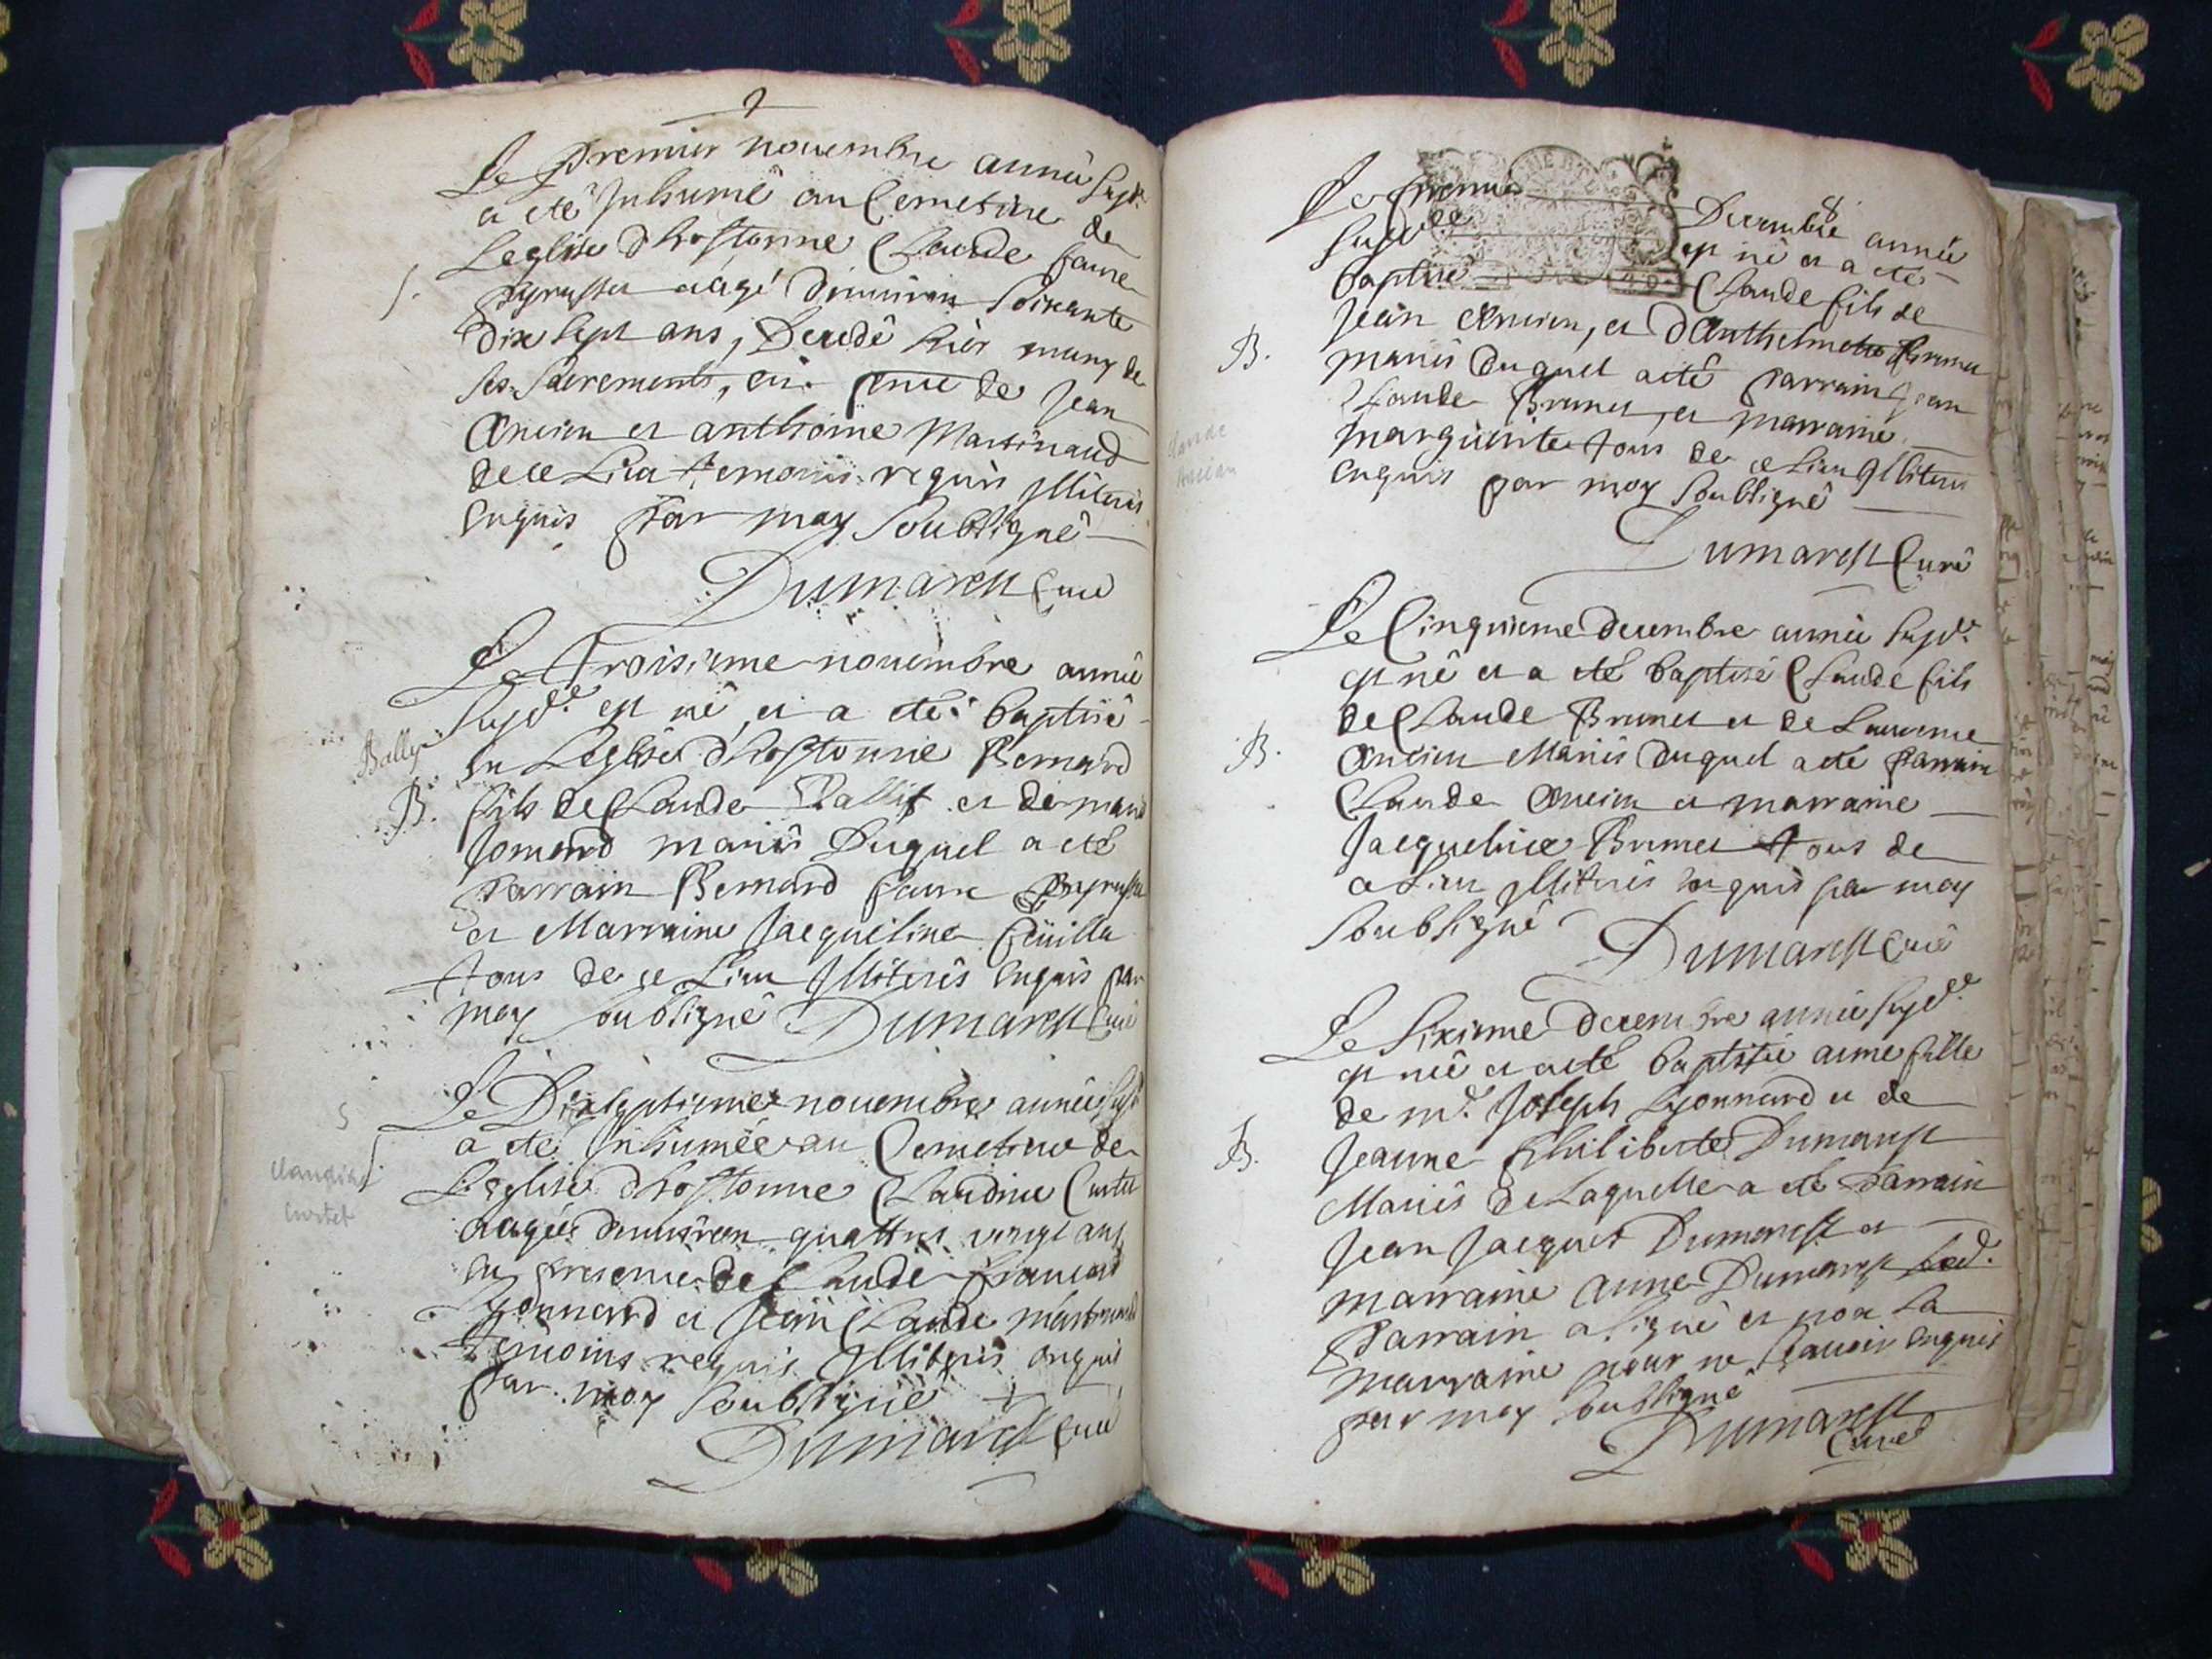 Le premier novembre année susd.
a eté Inhumé au Cemetiere de
Leglise dhostonne Claude faure
aagé dinviron soixante
dix sept ans, Decedé hier muny de
ses sacrements, en pnce de Jean
Ancien et anthoine Martinaud
de ce Lieu temoins requis Illiterés
enquis par moy soubsigné
Dumarest Curé
Le troisieme novembre année
susd.e est né et a eté baptisé
Bally
en Leglise dhostonne Bernard
B.
fils de Claude Ballif et de marie
Jomard mariés Duquel a eté
parrain Bernard faure
et Marraine Jacqueline
tous de ce Lieu Illiterés enquis par
moy soubsigné Dumarest Curé
Le Dixseptieme novembre année susd.
a eté Inhumée au Cemetiere de
S.
Leglise dhostonne Claudine Curtet
Claudine
Curtet
aagée dinviron quattre vingt ans
en presence de Claude françois
Lyonnard et Jean Claude martinaud
temoins requis Illiterés enquis
par moy soubsigné
Dumarest Curé
8
Le premier Decembre année
susd.e est né et a eté
baptisé Claude fils de
Jean Ancien, et Danthelmette Brunet
B.
mariés Duquel a eté parrain Jean
Claude Brunet, et marraine
Claude
Ancian
marguerite tous de ce Lieu Illiterés
enquis par moy soubsigné
Dumarest Curé
Le Cinquieme decembre année susd.e
est né et a eté baptisé Claude fils
de Claude Brunet et de Laurence
B.
Ancien Mariés duquel a eté parrain
Claude Ancien et marraine
Jacqueline Brunet tous de
ce Lieu Illiterés enquis par moy
soubsigné
Dumarest Curé
Le Sixieme decembre année susd.e
est née et a eté baptisée anne fille
de m.e Joseph Lyonnard et de
B.
Jeanne Philiberte Dumarest
Mariés de Laquelle a eté parrain
Jean Jacques Dumarest et
marraine Anne Dumarest
parrain a signé et non La
marraine pour ne scavoir enquis
par moy soubsigné
Dumarest
Curé